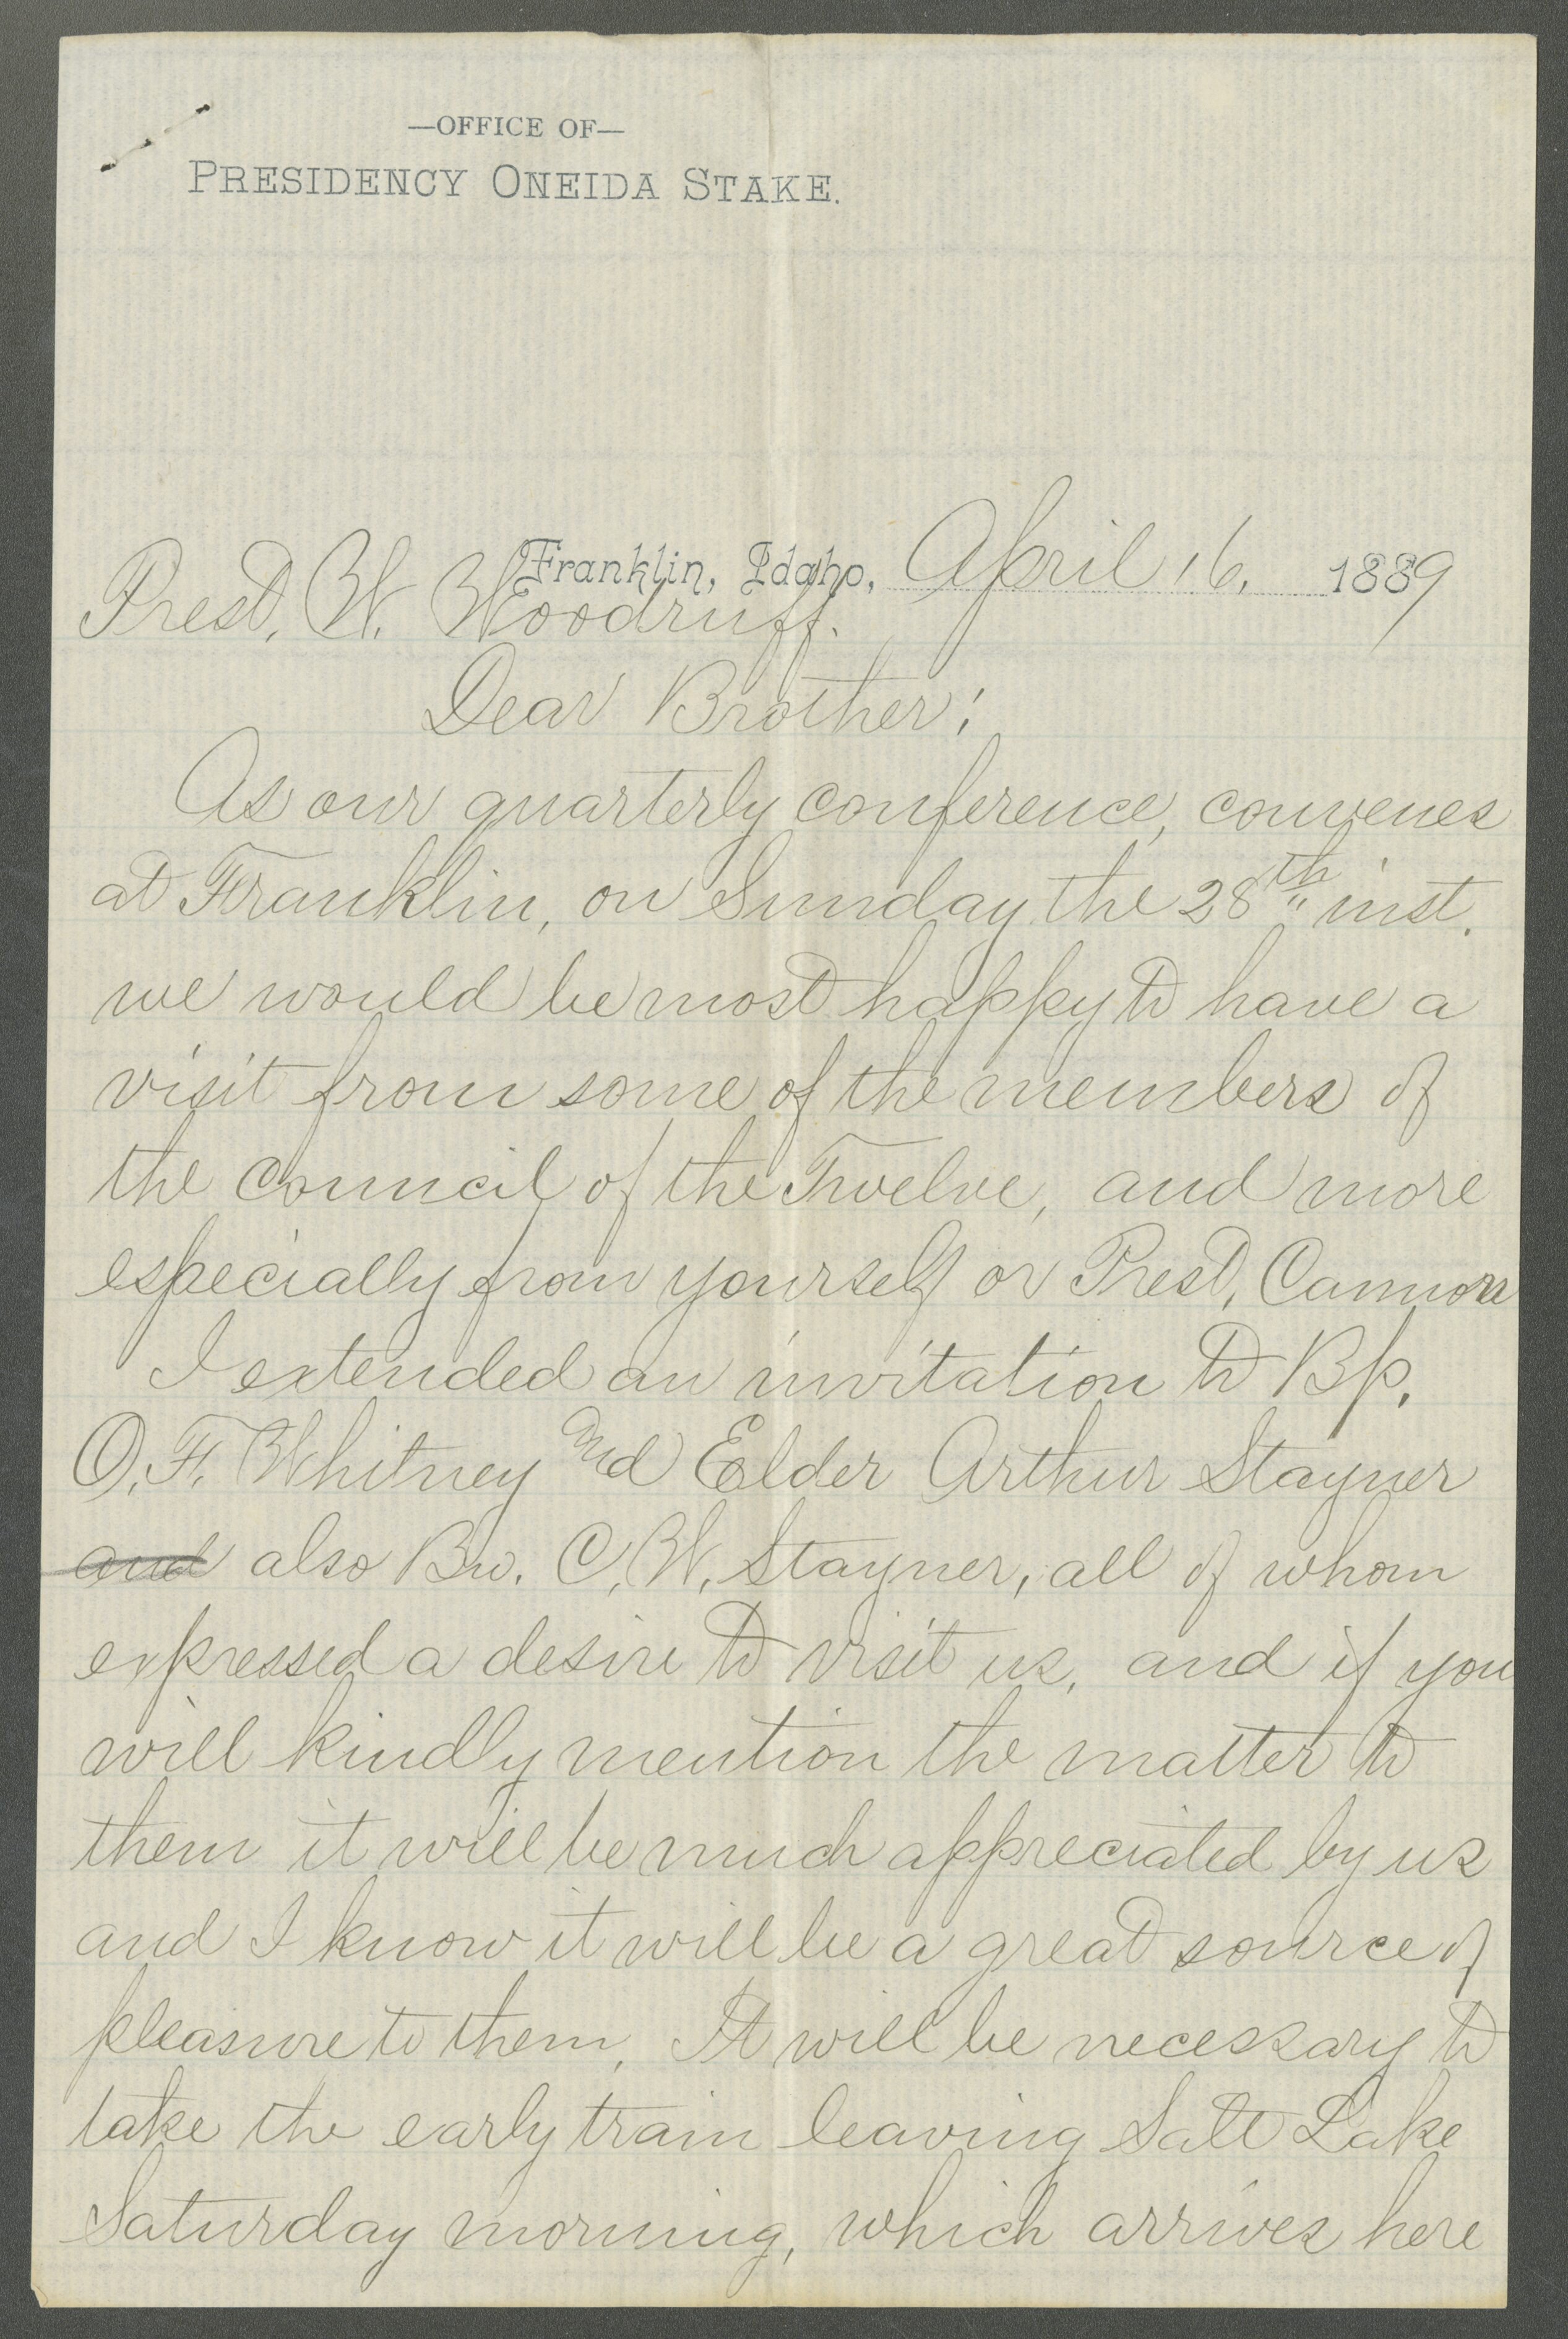 —OFFICE OF—
PRESIDENCY ONEIDA STAKE.
Franklin, Idaho, April 16, 1889
Prest, W. Woodruff.
Dear Brother;
As our quarterly conference, convenes
at Franklin, on Sunday the 28th inst.
we would be most happy to have a
visit from some of the members of
the council of the Twelve, and more
especially from yourself or Prest, Cannon
I extended an invitation to Bp.
O. F. Whitney and Elder Arthur Stayner
and also Bro. C. W. Stayner, all of whom
expressed a desire to visit us, and if you
will kindly mention the matter to
them it will be much appreciated by us
and I know it will be a great source of
pleasure to them, It will be necessary to
take the early train leaving Salt Lake
Saturday morning, which arrives here